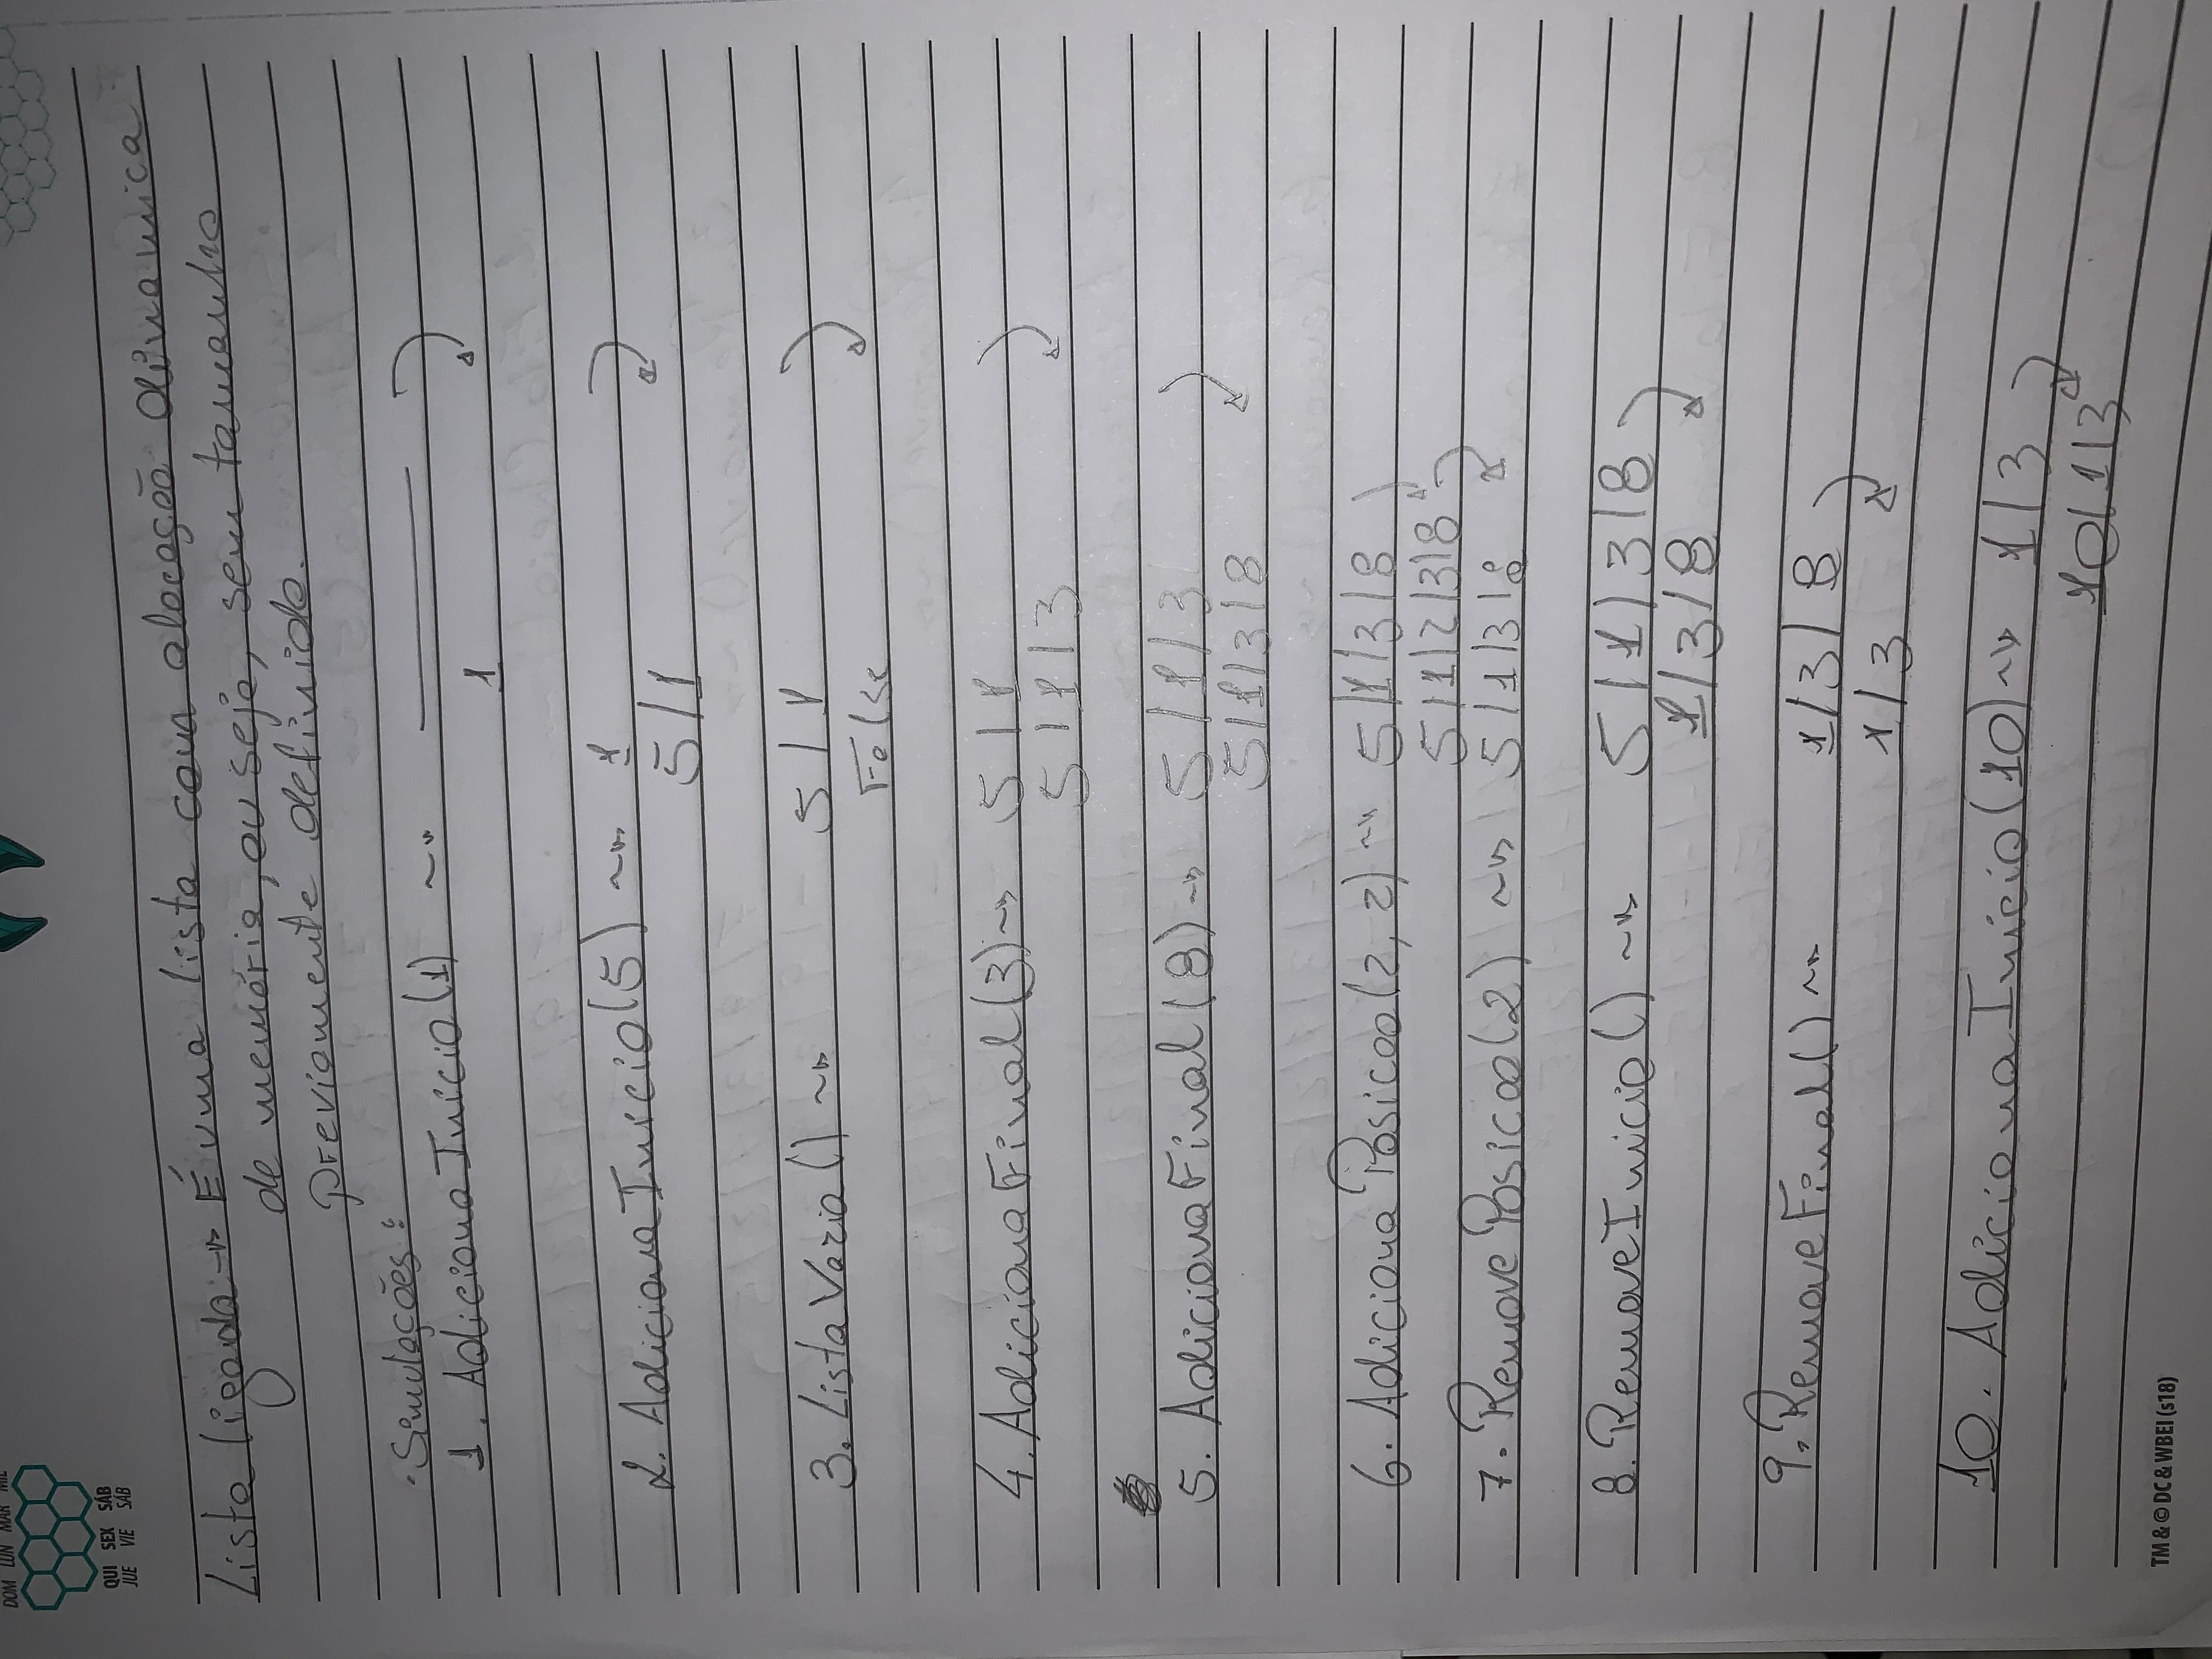 DOM LUN MAR MIE
QUI SEX SÁB
JUE VIE SÁB
Lista ligada → É uma lista com alocação dinamica
de memória, ou seja, sem tamanho
previamente definido.
· Simulações:
1. AdicionaInicio(1) →
1
2. AdicionaInicio(5) → 1
5/1
3. ListaVazia() → 5/1
False
4. AdicionaFinal(3) → 5/1
5/1/3
5. AdicionaFinal(8) → 5/1/3
5/1/3/8
6. AdicionaPosicao(2, 2) → 5/1/3/8
5/1/2/3/8
7. RemovePosicao(2) → 5/1/3/8
8. RemoveInicio() → 5/1/3/8
1/3/8
9. RemoveFinal() → 1/3/8
1/3
10. AdicionaInicio(10) → 1/3
10/1/3
TM & © DC & WBEI (s18)